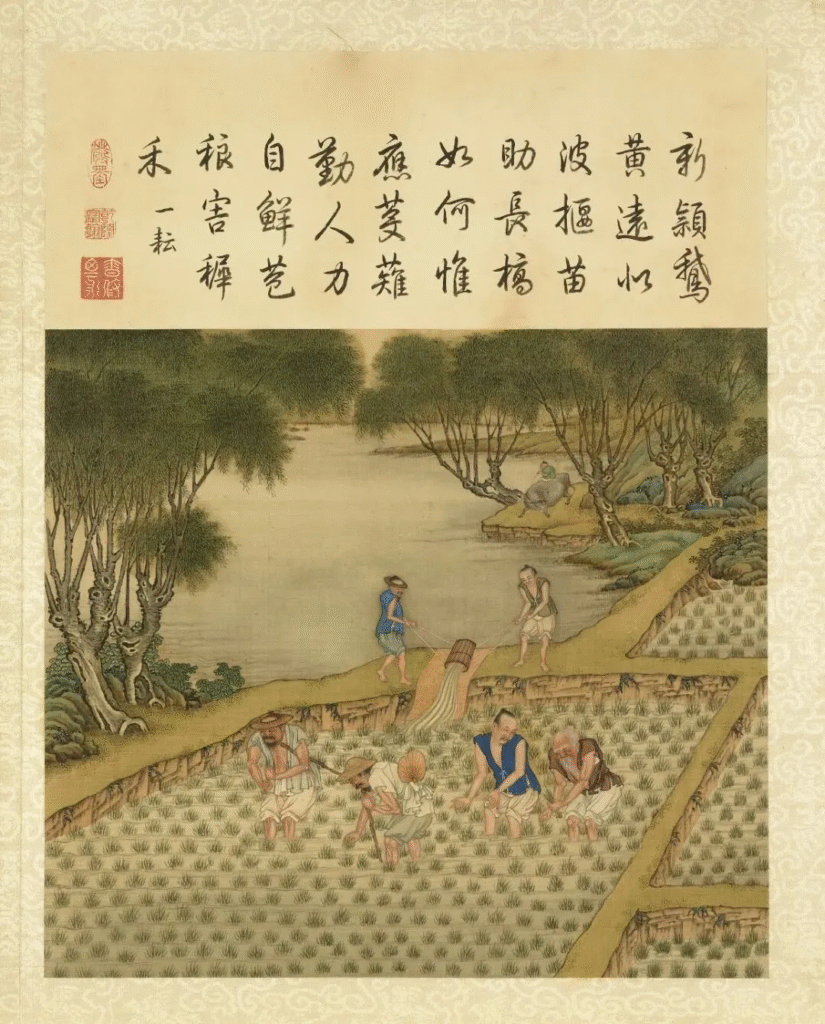 新穎鵝
黃遠似
波揠苗
助長槁
如何惟
應芟薙
勤人力
自鮮苞
稂害穉
禾
一耘